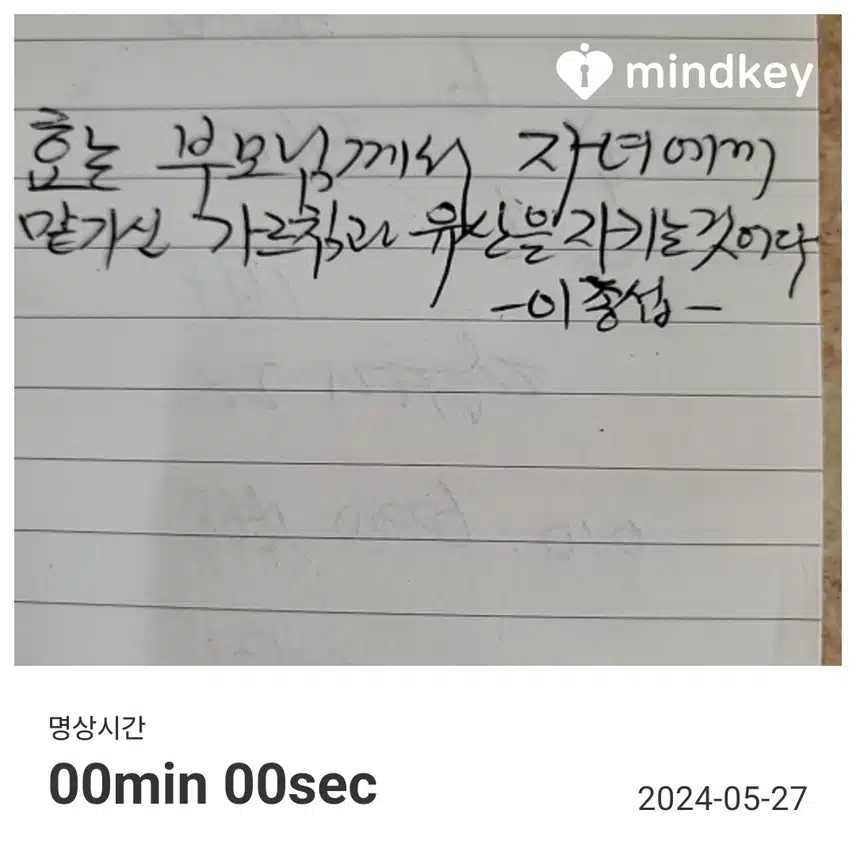 mindkey
효는 부모님께서 자녀에게
맡기신 가르침과 유산을 지키는것이다
-이종섭-
명상시간
00min 00sec
2024-05-27